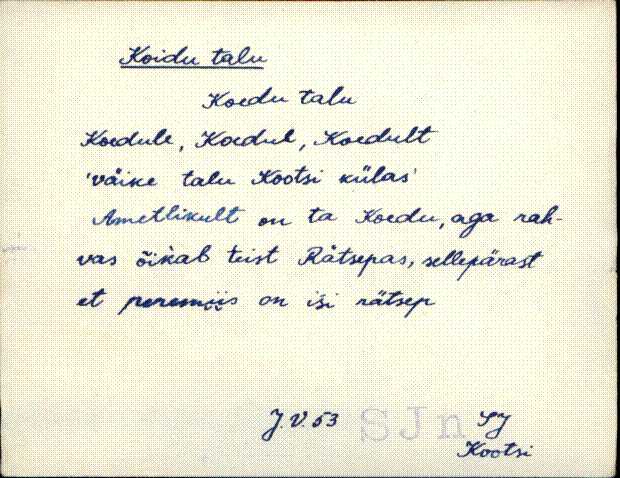 Koidu talu
Koedu talu
Koedule, Koedul, Koedult
'väike talu Kootsi külas'
Ametlikult on ta Koedu, aga rah-
vas õikab teist Rätsepas, sellepärast
et peremiis on isi rätsep
J.V.53 SJn SJ
Kootsi